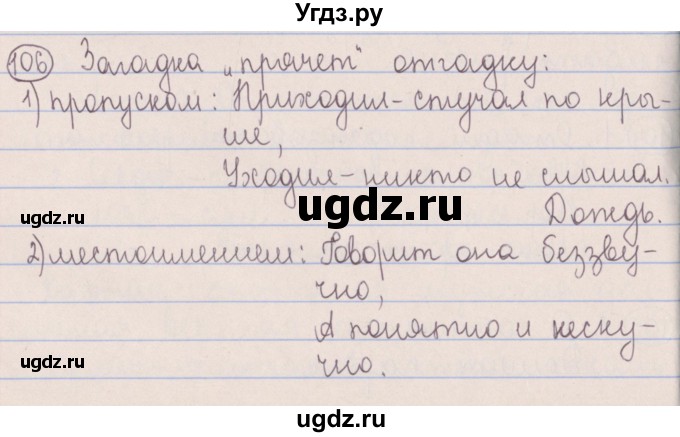 Угдз.ру
106 Загадка „прячет" отгадку:
1) пропуском: Приходил-стучал по кры-
ше,
Уходил-никто не слышал.
ugdz.ru
ugdz.ru
ugdz.ru
Дождь.
2) местоимением: Говорит она беззву-
чно,
А понятно и неску-
ugdz.ru
чно.
ugdz.ru